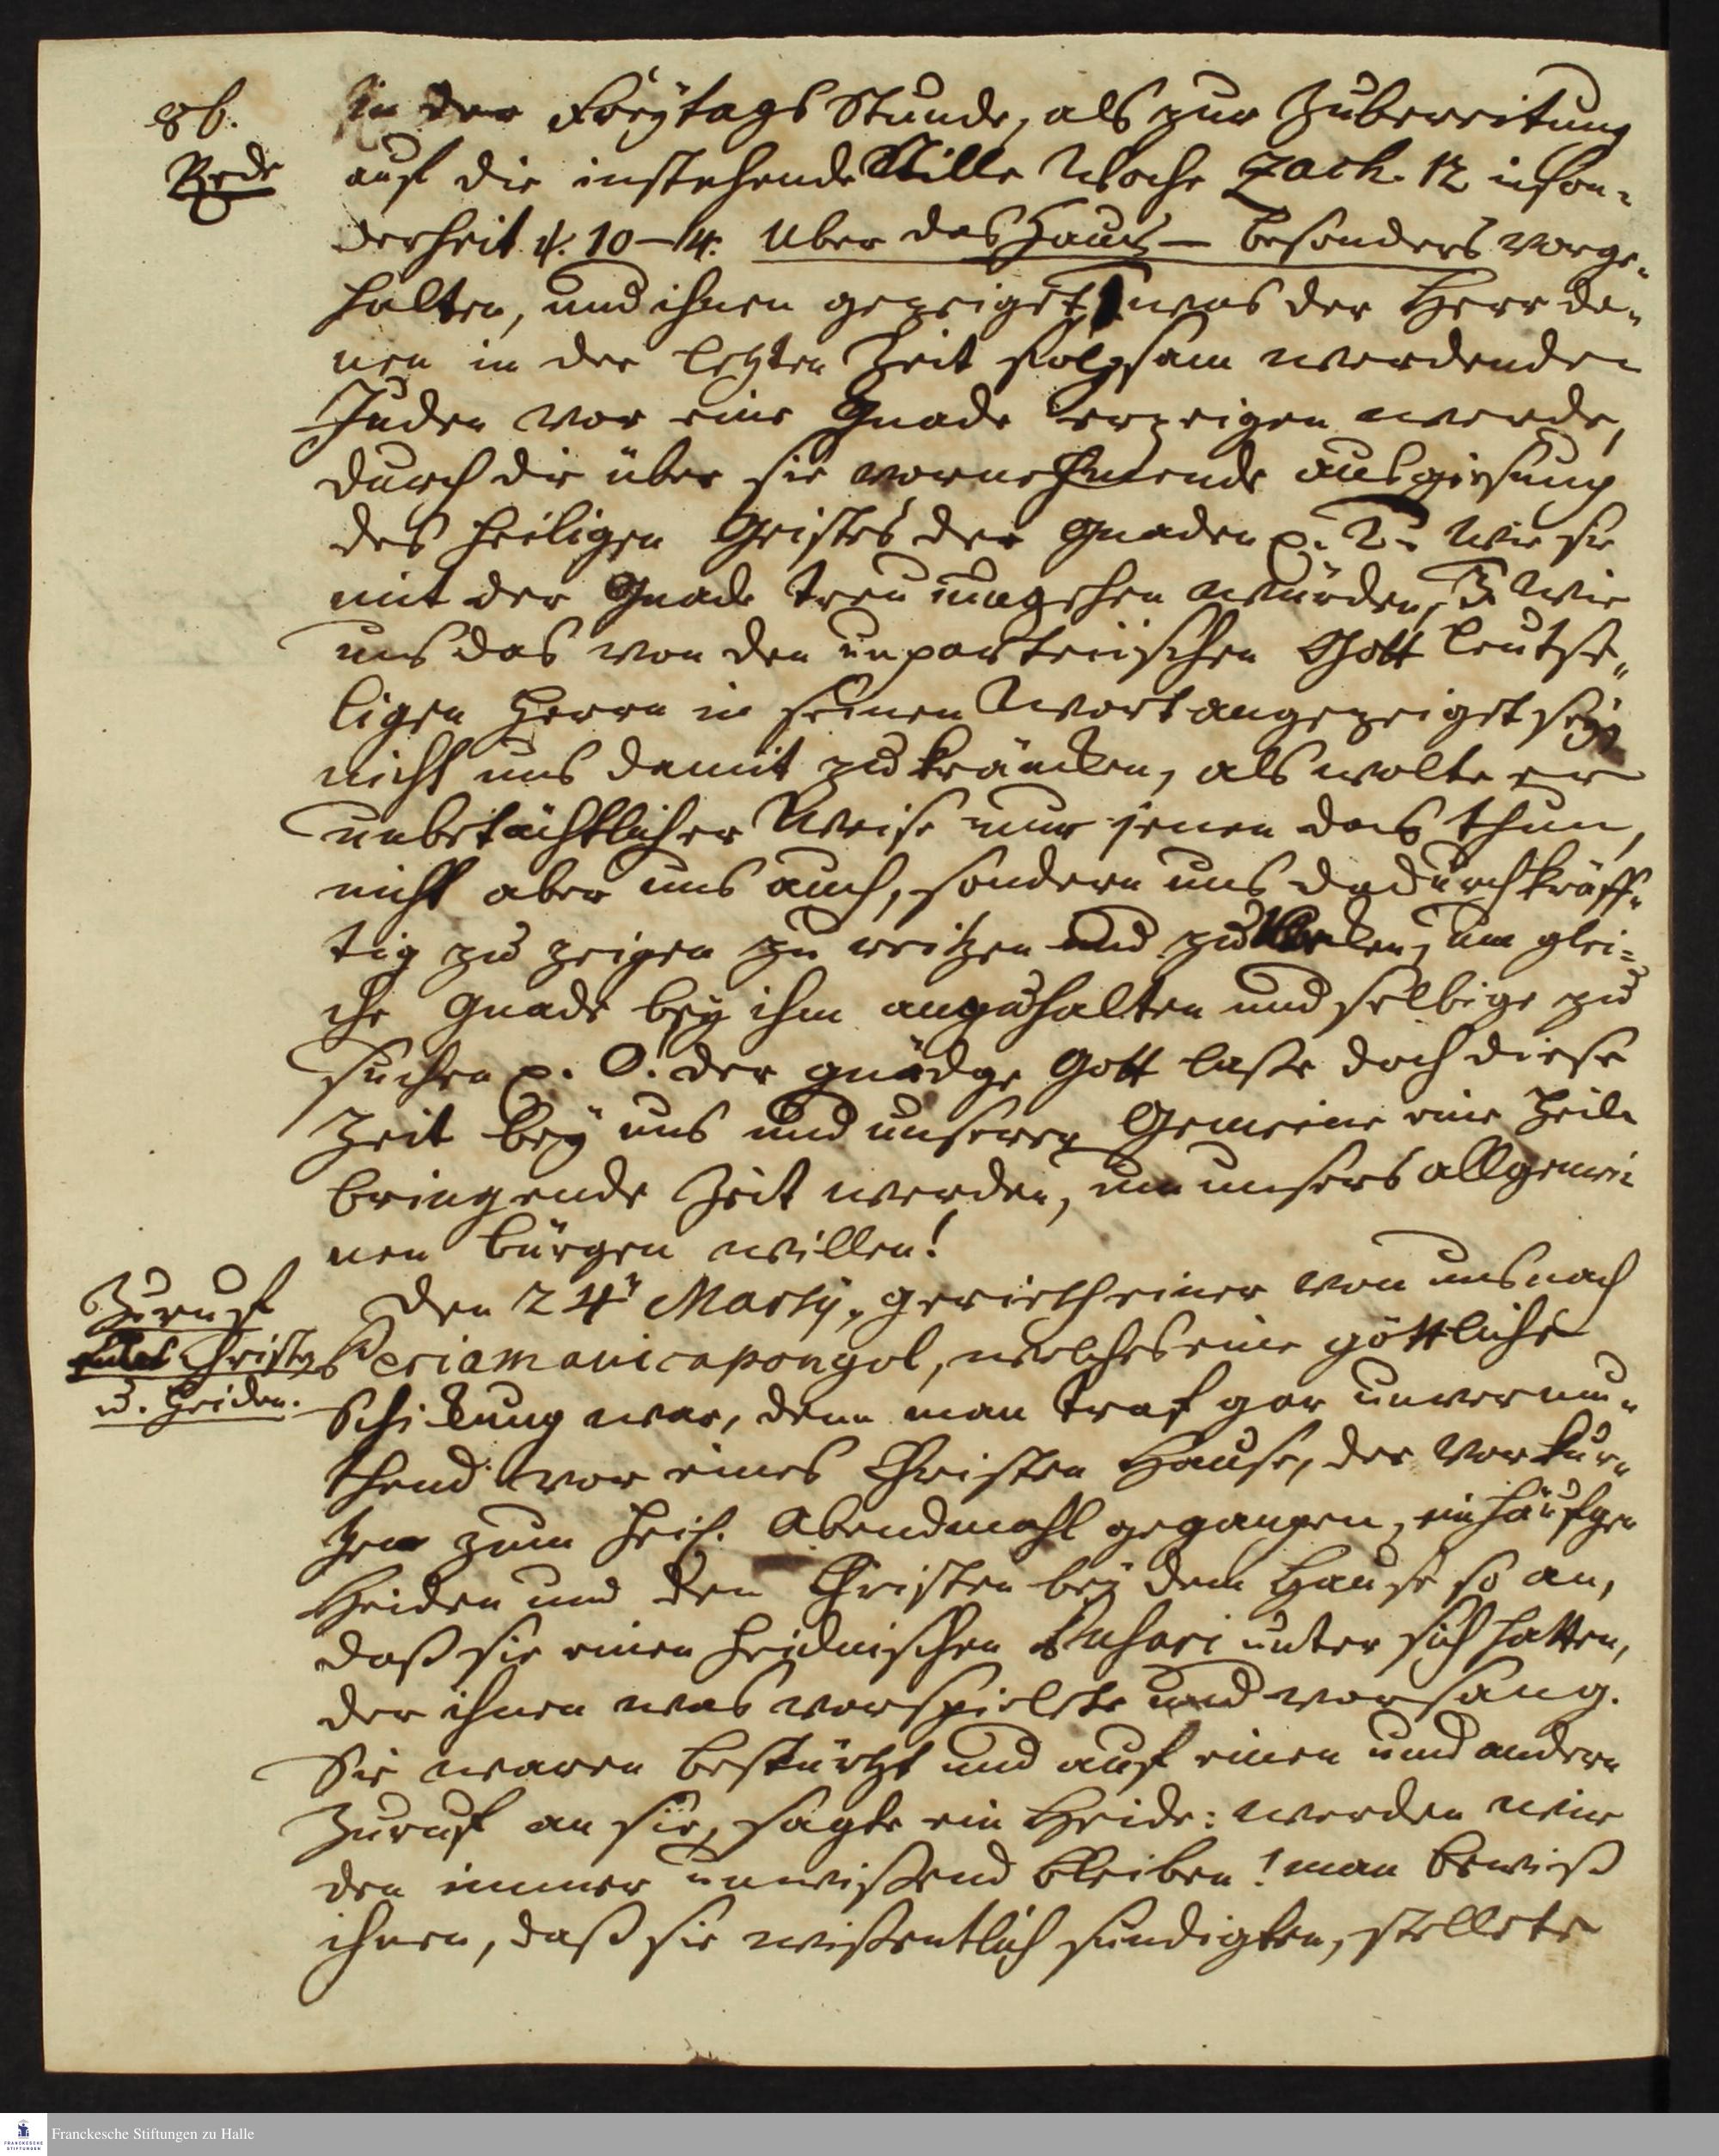 86.
Rede
In der Freytags Stunde, als zur Zubereitung
auf die instehende Stille Woche Zach. 12 inson-
derheit v. 10–14. Uber das Hauß — besonders vorge-
halten, und ihnen gezeiget, was der Herr de-
nen in der letzten Zeit folgsam werdenden
Juden vor eine Gnade erzeigen werde,
durch die über sie vornehmende ausgießung
des heiligen Geistes der Gnaden p. 2. Wie sie
mit der Gnade treu umgehen würden, 3. Wie
uns das von den unparteiischen Gott leutse-
ligen Herrn in seinen Wort angezeiget sey,
nicht uns damit zu kräncken, als wolte er
unbetächtlicher Weise nur jenen das thun,
nicht aber uns auch, sondern uns dadurch kräff-
tig zu zeigen zu reitzen und zu um glei-
che Gnade bey ihm anzuhalten und selbige zu
suchen p. O! der gnädge Gott lasse doch diese
Zeit bey uns und unserer Gemeine eine Heil-
bringende Zeit werden, um unsers allgemei
nen bürgen willen!
Zuruf
Christ
u. Heiden.
Den 24n Martij, gerieth einer von uns nach
Periamanicapongol, welches eine göttliche
Schickung war, denn man traf gar unvermu-
thend vor eines Christen Hause, der vor kur-
tzen zum heil. Abendmahl gegangen, ein häufgen
Heiden und den Christen bey dem Hause so an,
daß sie einen heidnischen Pusari unter sich hatten,
der ihnen was vorspielete und vorsang.
Sie waren bestürtzt und auf einen und andern
Zuruf an sie, sagte ein Heide: werden wir
den immer unwissend bleiben! man bewieß
ihnen, daß sie wissentlich sündigten, stellete
Franckesche Stiftungen zu Halle